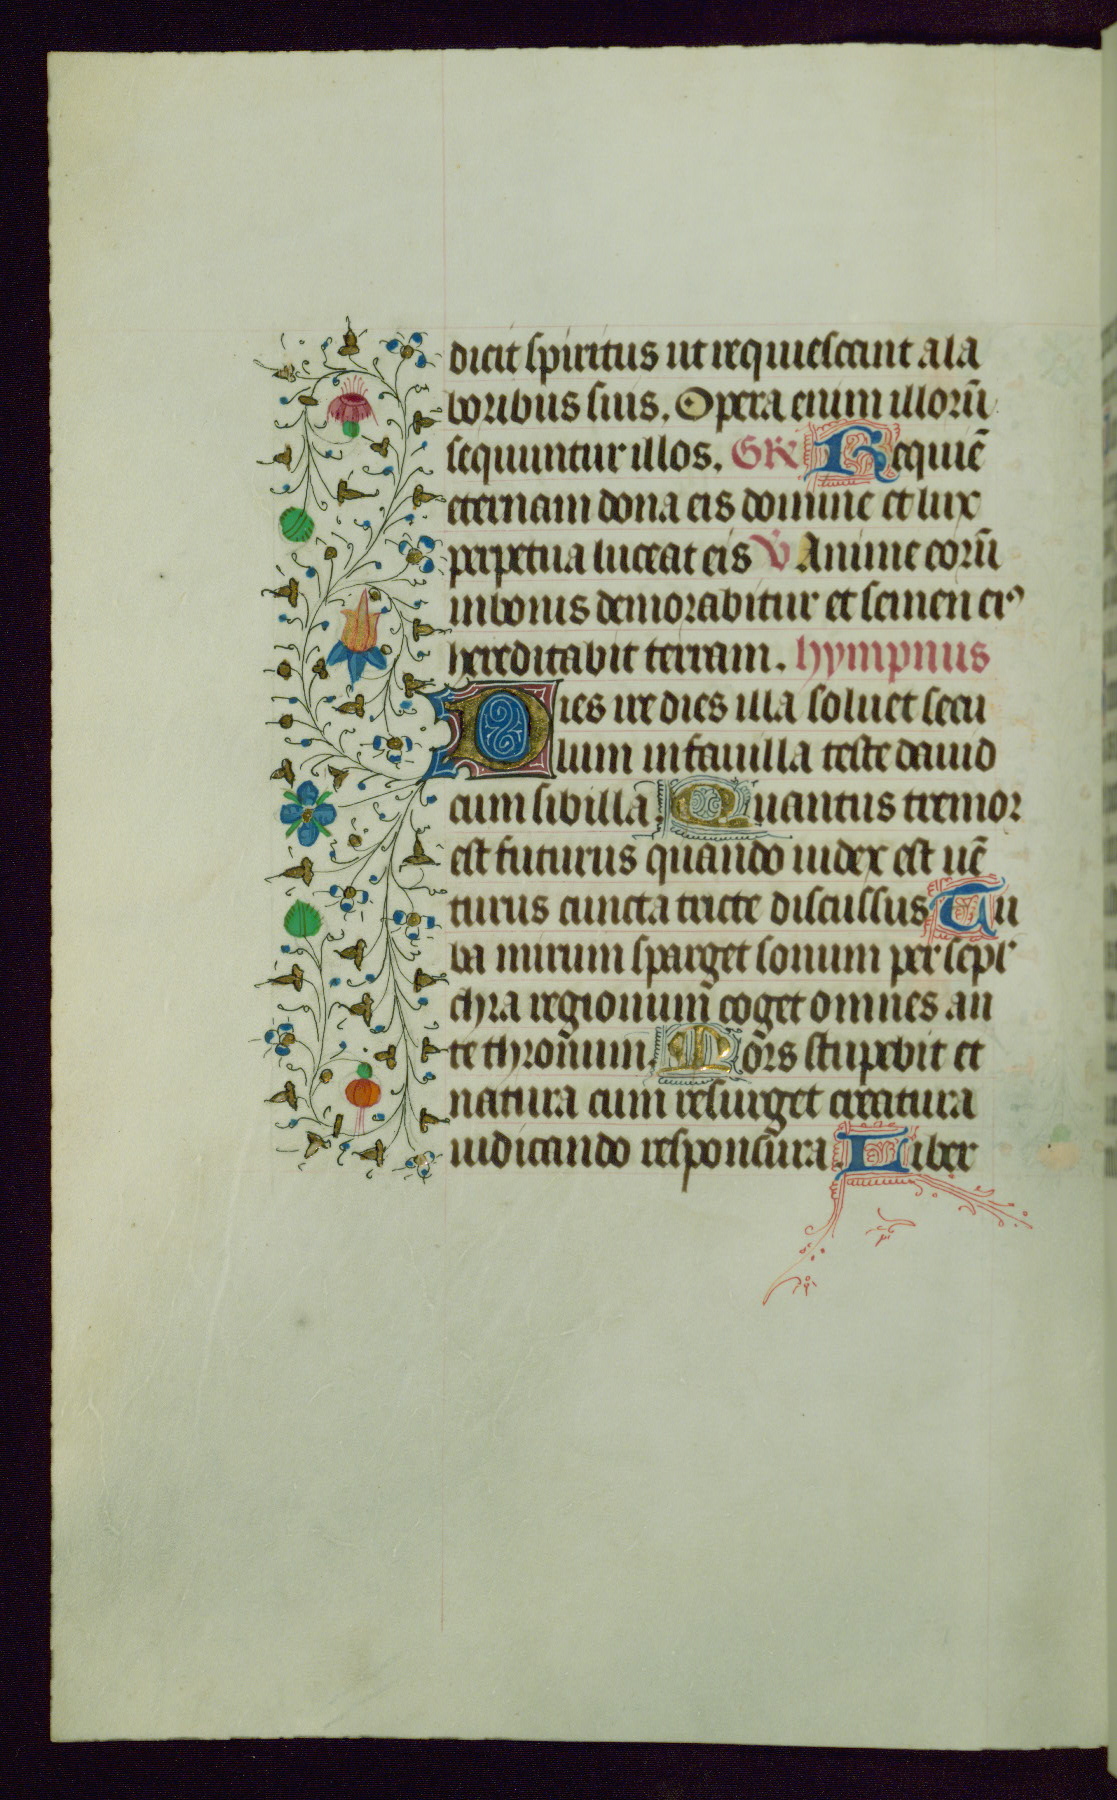 dicit spiritus ut requiescant a la
boribus suis. Opera enim illorū
sequuntur illos. GR Requiē
eternam dona eis domine et lux
perpetua luceat eis V Anime eorū
in bonis demorabitur et semen eiꝰ
hereditabit terram. hympnus
Dies ire dies illa soluet secu
lum in fauilla teste dauid
cum sibilla. Quantus tremor
est futurus quando iudex est uē
turus cuncta tricte discussus Tu
ba mirum sparget sonum per sepl
chra regionum coget omnes an
te thronum. Mors stupebit et
natura cum resurget creatura
iudicando responsura. Liber